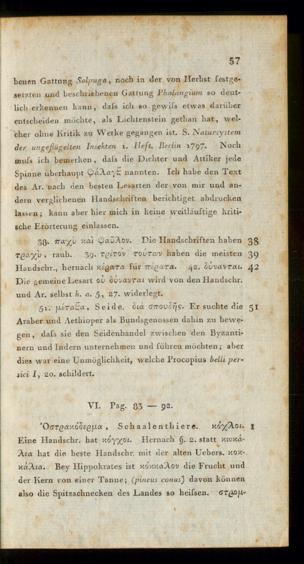 57
benen Gattung Solpuga, noch in der von Herbst festge-
setzten und beschriebenen Gattung Phalangium so deut-
lich erkennen kann, daſs ich so gewiſs etwas darüber
entscheiden möchte, als Lichtenstein gethan hat, wel-
cher ohne Kritik zu Werke gegangen ist. S. Natursystem
der ungeflügelten Insekten 1. Heft, Berlin 1797. Noch
muſs ich bemerken, daſs die Dichter und Attiker jede
Spinne überhaupt φάλαγξ nannten. Ich habe den Text
des Ar. nach den besten Lesarten der von mir und an-
dern verglichenen Handschriften berichtiget abdrucken
lassen; kann aber hier mich in keine weitläuftige kriti-
sche Erörterung einlassen.
38. παχὺ καὶ φαῦλον. Die Handschriften haben 38
τραχὺ, rauh. 39. τρίτον τούτων haben die meisten 39
Handschr., hernach κέρατα für πέρατα. 42. δύνανται 42
Die gemeine Lesart οὐ δύνανται wird von den Handschr.
und Ar. selbst h. a. 5, 27. widerlegt.
51. μέταξα, Seide. διὰ σπουδῆς. Er suchte die 51
Araber und Aethioper als Bundsgenossen dahin zu bewe-
gen, daſs sie den Seidenhandel zwischen den Byzanti-
nern und Indern unternehmen und führen möchten; aber
dies war eine Unmöglichkeit, welche Procopius belli per-
sici I, 20. schildert.
VI. Pag. 83 — 92.
Ὀστρακόδερμα, Schaalenthiere. κόχλοι. 1
Eine Handschr. hat κόγχοι. Hernach §. 2. statt κωκά-
λια hat die beste Handschr. mit der alten Uebers. κοκ-
κάλια. Bey Hippokrates ist κόκκαλον die Frucht und
der Kern von einer Tanne; (pineus conus) davon können
also die Spitzschnecken des Landes so heiſsen. στρομ-